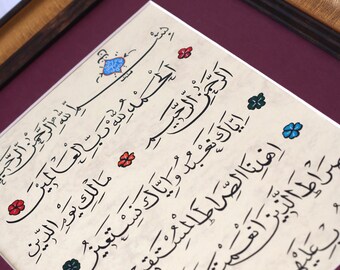 بِسْمِ اللهِ الرَّحْمٰنِ الرَّحِيمِ
اَلْحَمْدُ لِلّٰهِ رَبِّ الْعَالَمِينَ
اَلرَّحْمٰنِ الرَّحِيمِ مَالِكِ يَوْمِ الدِّينِ
اِيَّاكَ نَعْبُدُ وَاِيَّاكَ نَسْتَعِينُ
اِهْدِنَا الصِّرَاطَ الْمُسْتَقِيمَ
صِرَاطَ الَّذِينَ اَنْعَمْتَ
عَلَيْهِمْ